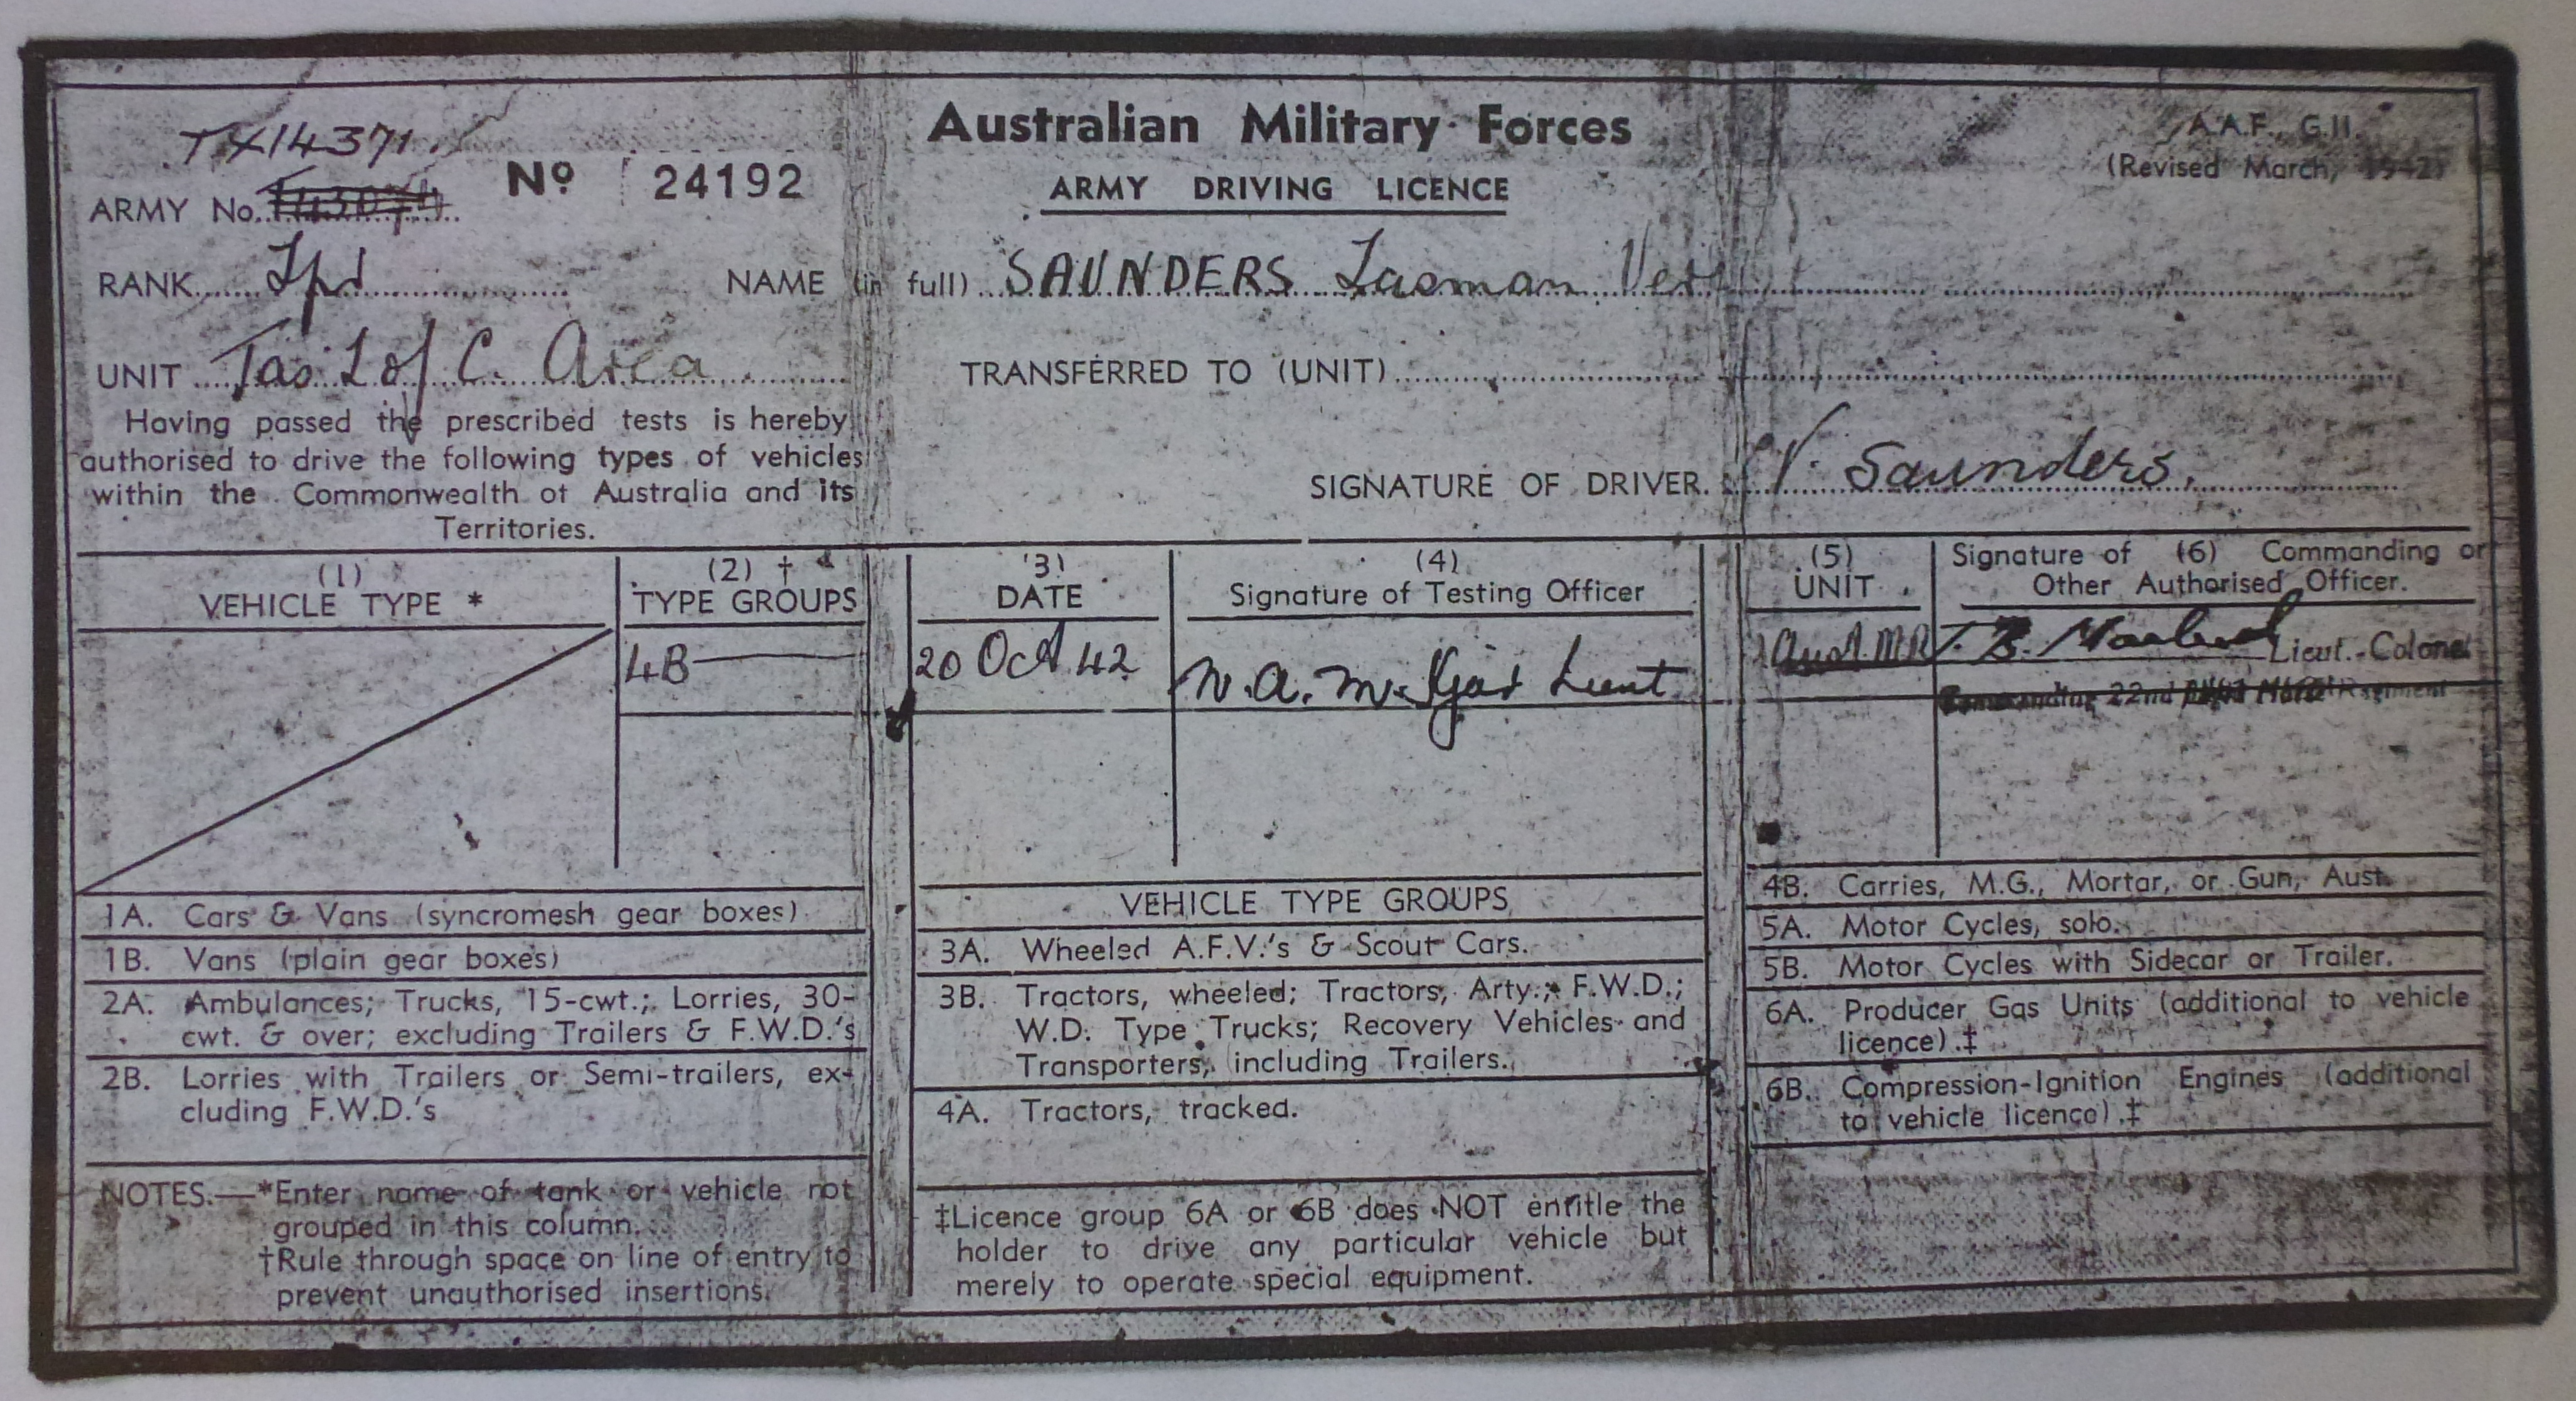 Australian Military Forces
ARMY DRIVING LICENCE
A.A.F., G.11.
(Revised March, 1942)
TX14371
ARMY No. No 24192
RANK Tpr NAME (in full) SAUNDERS Tasman
UNIT Tas L of C. Area TRANSFERRED TO (UNIT)
Having passed the prescribed tests is hereby
authorised to drive the following types of vehicles
within the Commonwealth of Australia and its
Territories.
SIGNATURE OF DRIVER. V. Saunders.
(1)
VEHICLE TYPE *
(2) †
TYPE GROUPS
4B
(3)
DATE
20 Oct 42
(4)
Signature of Testing Officer
Lieut
(5)
UNIT
Signature of (6) Commanding or
Other Authorised Officer.
Lieut.-Colonel
22nd
1A. Cars & Vans (syncromesh gear boxes)
1B. Vans (plain gear boxes)
2A. Ambulances; Trucks, 15-cwt.; Lorries, 30-
cwt. & over; excluding Trailers & F.W.D.'s
2B. Lorries with Trailers or Semi-trailers, ex-
cluding F.W.D.'s
VEHICLE TYPE GROUPS
3A. Wheeled A.F.V.'s & Scout Cars.
3B. Tractors, wheeled; Tractors, Arty.; F.W.D.;
W.D. Type Trucks; Recovery Vehicles and
Transporters, including Trailers.
4A. Tractors, tracked.
4B. Carries, M.G., Mortar, or Gun, Aust.
5A. Motor Cycles, solo.
5B. Motor Cycles with Sidecar or Trailer.
6A. Producer Gas Units (additional to vehicle
licence).‡
6B. Compression-Ignition Engines (additional
to vehicle licence).‡
NOTES.—*Enter name of tank or vehicle not
grouped in this column.
†Rule through space on line of entry to
prevent unauthorised insertions.
‡Licence group 6A or 6B does NOT entitle the
holder to drive any particular vehicle but
merely to operate special equipment.